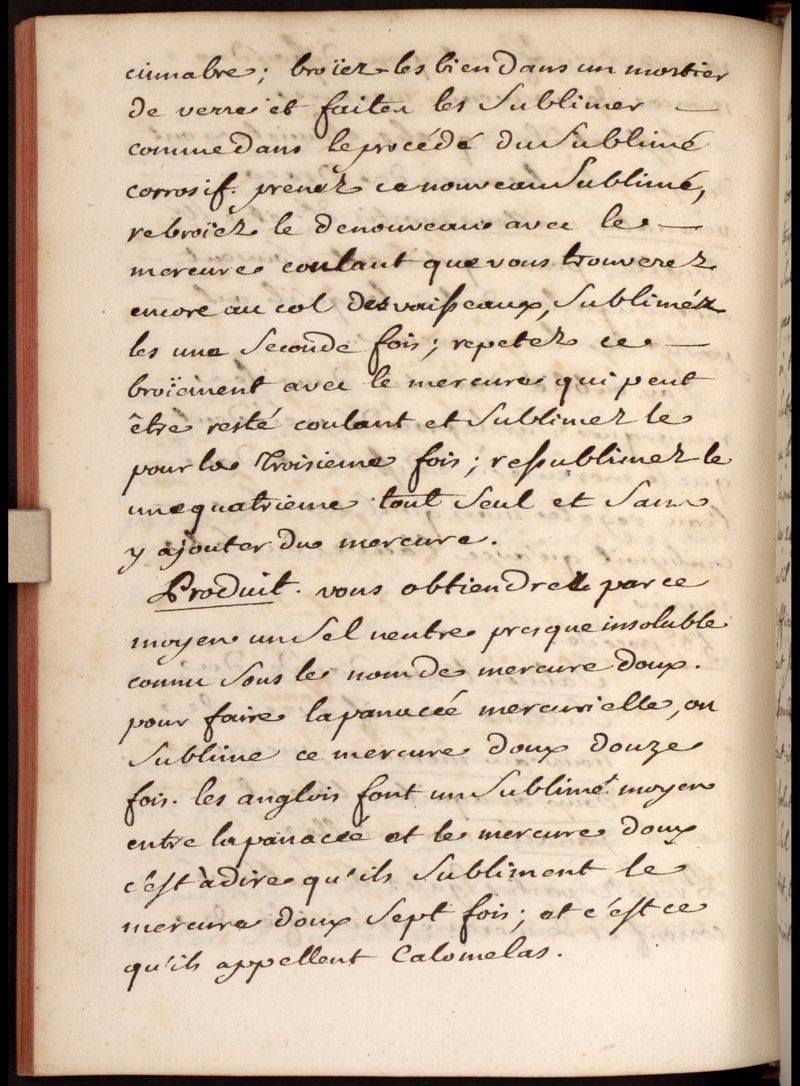 cinnabre; broïez les bien dans un mortier
de verre et faiten les Sublimer —
comme dans le procédé du Sublimé
corrosif. prenéz ce nouveau Sublimé,
rebroïez le denouveau avec le —
mercure coulant que vous trouverez
encore au col des vaisseaux, Subliméz
les une Seconde fois; repetez ce —
broïement avec le mercure qui peut
être resté coulant et Sublimez le
pour la Troisieme fois; resublimez le
une quatrieme tout Seul et Sans
y ajouter du mercure.
Produit. vous obtiendrez par ce
moyen un Sel neutre presque insoluble
connu Sous le nom de mercure doux.
pour faire la panacée mercurielle, on
Sublime ce mercure doux douze
fois. les anglois font un Sublimé moyen
entre la panacée et le mercure doux
c'est àdire qu'ils Subliment le
mercure doux Sept fois; et c'est ce
qu'ils appellent Calomelas.